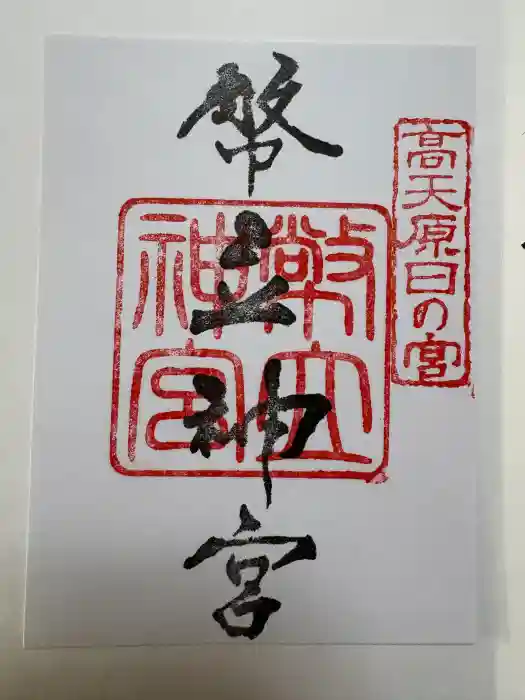 高天原日の宮
幣立神宮
幣立
神宮